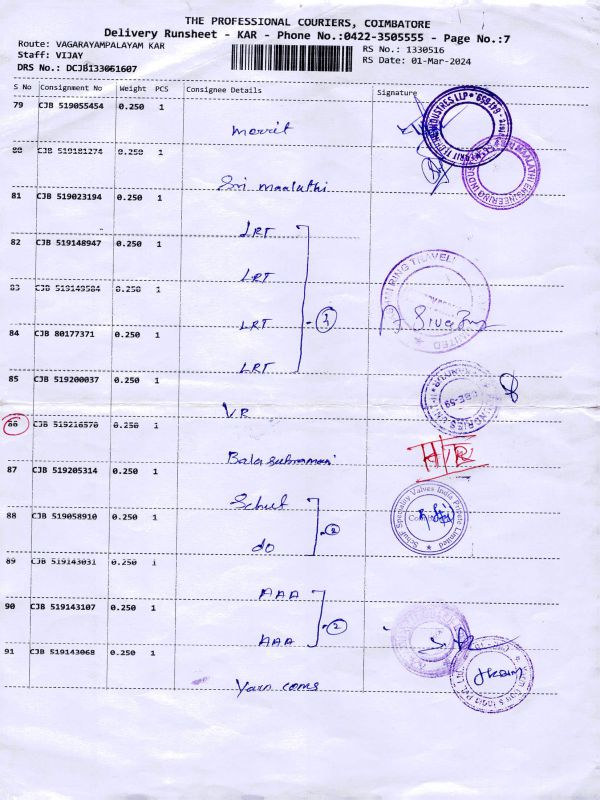 THE PROFESSIONAL COURIERS, COIMBATORE
Delivery Runsheet - KAR - Phone No.:0422-3505555 - Page No.:7
Route: VAGARAYAMPALAYAM KAR
RS No.: 1330516
Staff: VIJAY
RS Date: 01-Mar-2024
DRS No.: DCJB133061607
S No Consignment No Weight PCS Consignee Details Signature
79 CJB 519055454 0.250 1
Merrit
80 CJB 519181274 0.250 1
Sri maalathi
81 CJB 519023194 0.250 1
LRT
82 CJB 519148947 0.250 1
LRT
83 CJB 519149584 0.250 1
LRT
84 CJB 80177371 0.250 1
LRT
85 CJB 519200037 0.250 1
VR
86 CJB 519216570 0.250 1
Balasubramani
87 CJB 519205314 0.250 1
Schuf
Schuf Speciality Valves India Private Limited
88 CJB 519058910 0.250 1
do
89 CJB 519143031 0.250 1
AAA
90 CJB 519143107 0.250 1
AAA
2
91 CJB 519143068 0.250 1
Yarn cones